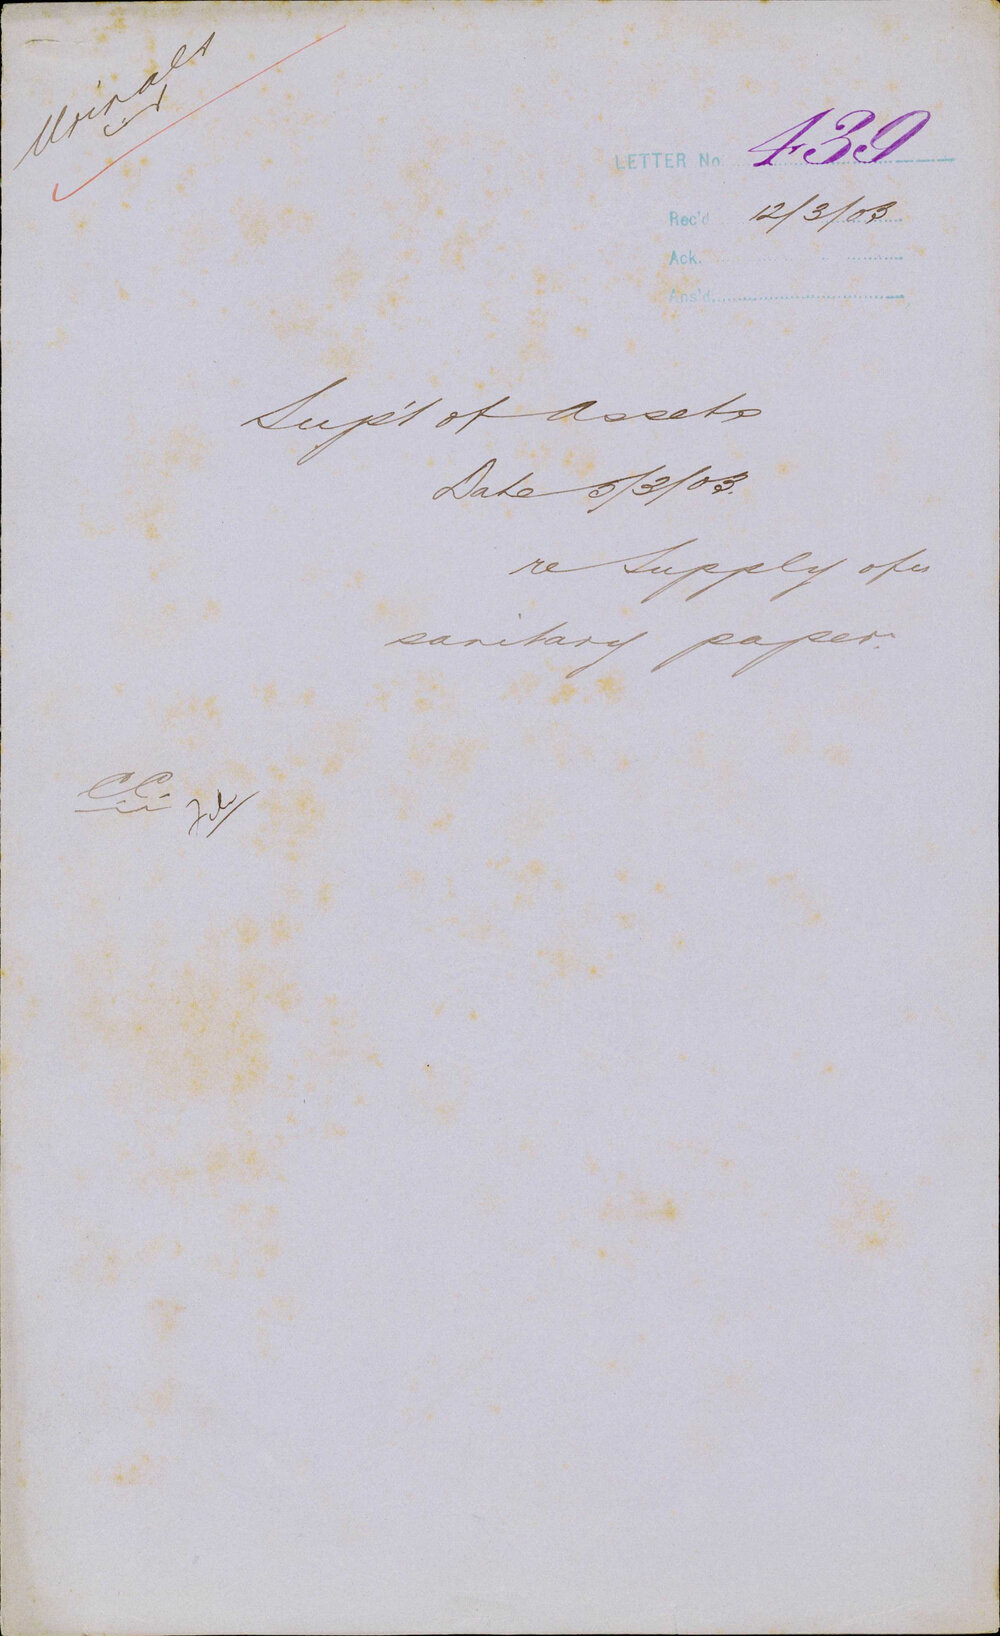 Urinals
LETTER No. 439
Rec'd 12/3/03
Ack.
Ans'd
Sup't of Assets
Date 5/3/03.
re Supply of
sanitary paper.
CC. File